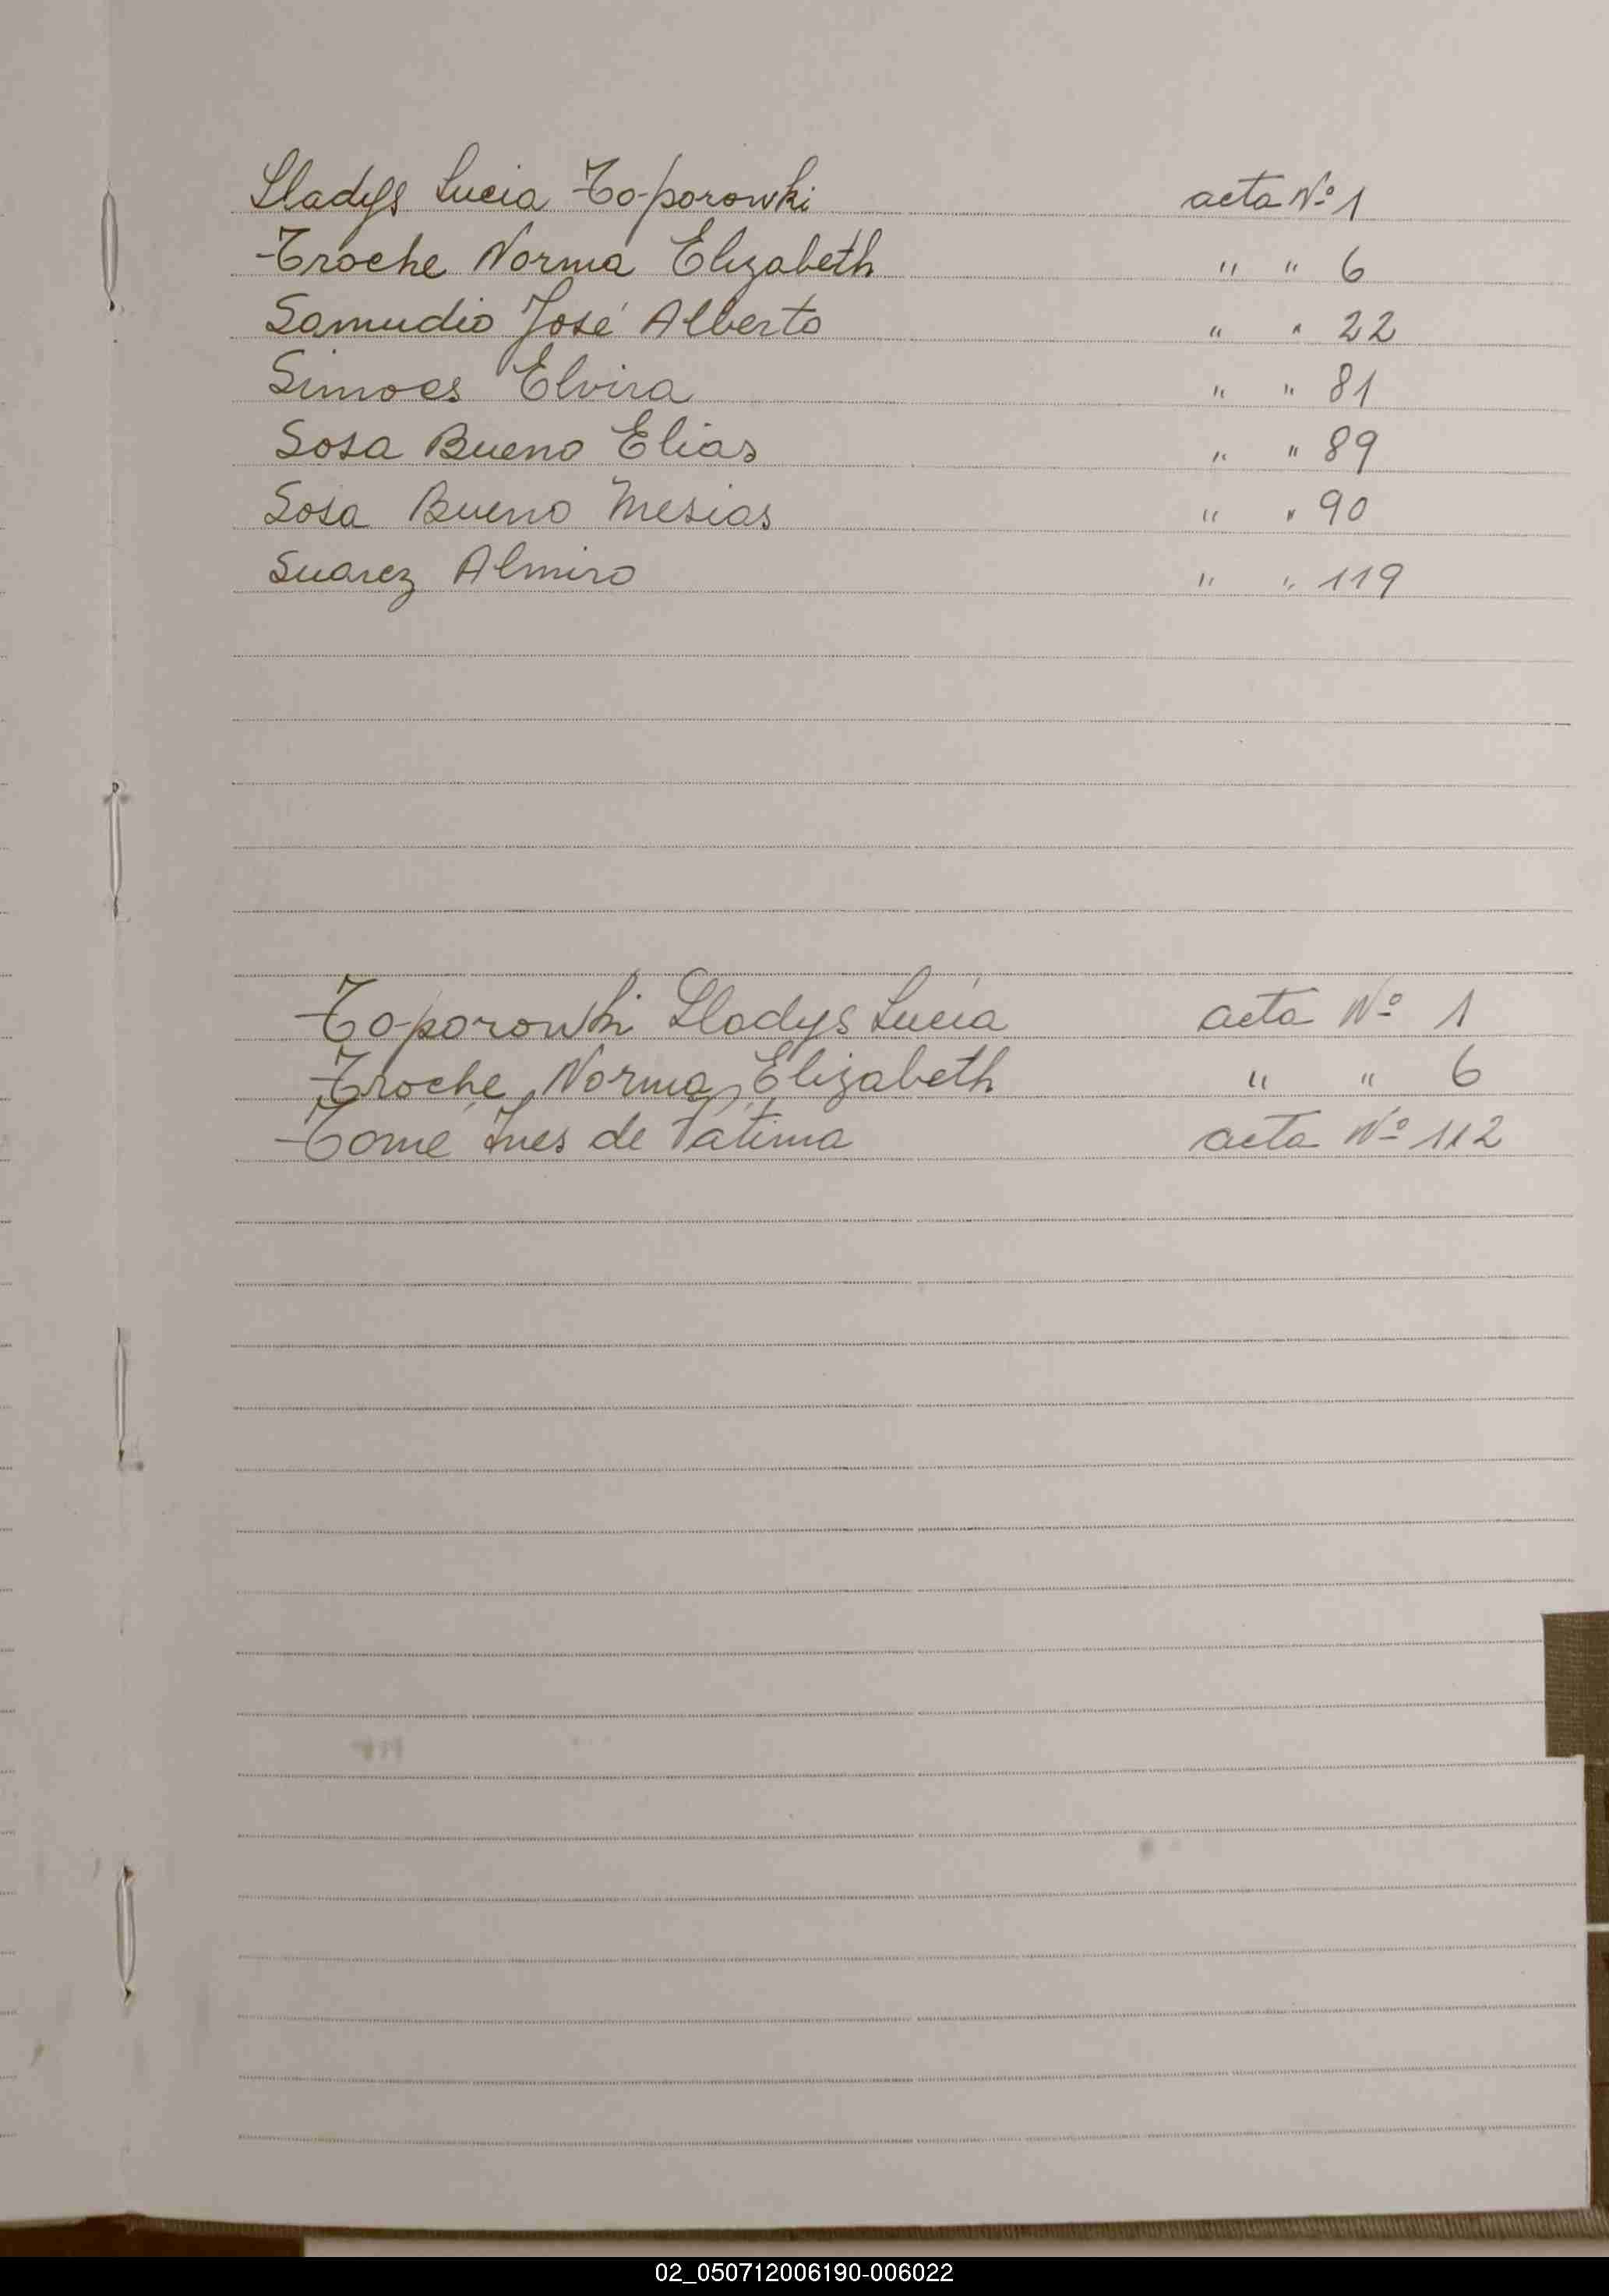 Gladys Lucia Toporowki acta Nº 1
Troche Norma Elizabeth " " 6
Samudio José Alberto " " 22
Simoes Elvira " " 81
Sosa Bueno Elias " " 89
Sosa Bueno Mesias " " 90
Suarez Almiro " " 119
Toporowki Gladys Lucía acta Nº 1
Troche Norma Elizabeth " " 6
Tomé Ines de Fátima acta Nº 112
02_050712006190-006022